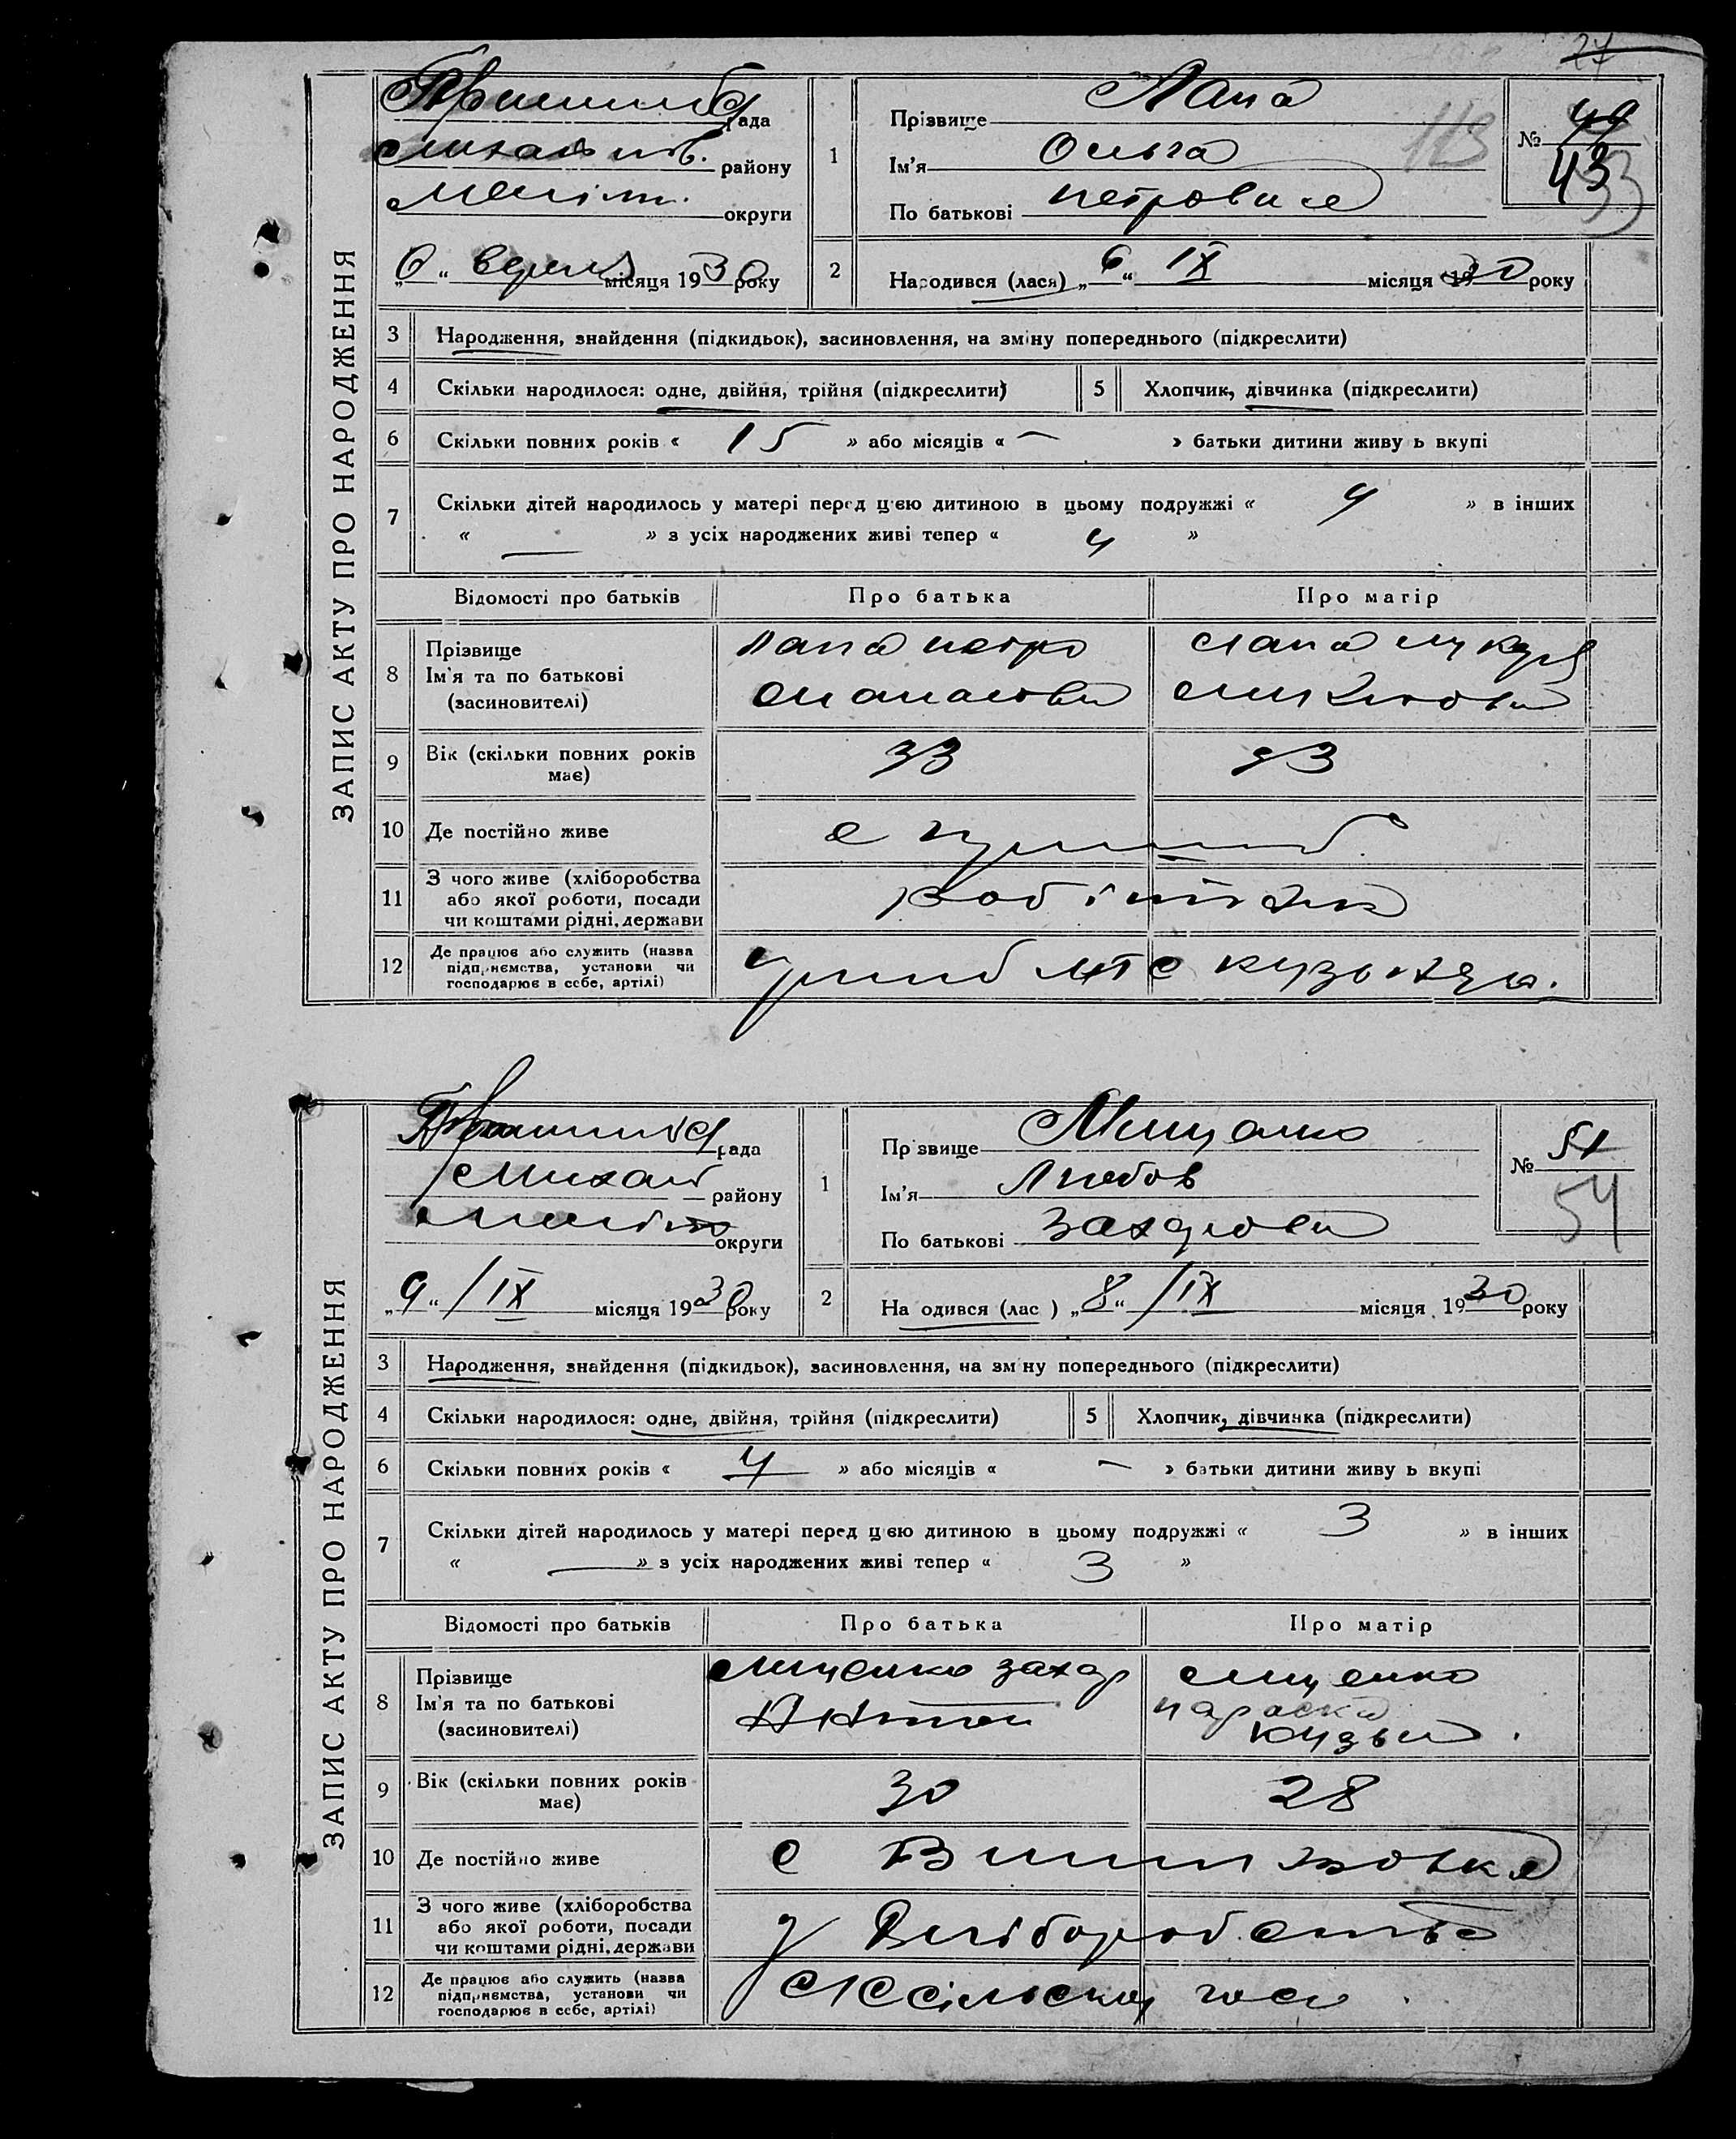 27
ЗАПИС АКТУ ПРО НАРОДЖЕННЯ
рада
району
округи
„6“ місяця 1930 року
1
Прізвище Лапа
Ім'я Ольга
По батькові Петровна
113
№ 49
43
53
2
Народився (лася) „6“ IX місяця 1930 року
3 Народження, знайдення (підкидьок), засиновлення, на зміну попереднього (підкреслити)
4 Скільки народилося: одне, двійня, трійня (підкреслити) 5 Хлопчик, дівчинка (підкреслити)
6 Скільки повних років « 15 » або місяців « — » батьки дитини живу ь вкупі
7 Скільки дітей народилось у матері перед цєю дитиною в цьому подружжі « 4 » в інших
« — » з усіх народжених живі тепер « 4 »
Відомості про батьків Про батька Про матір
8 Прізвище
Ім'я та по батькові
(засиновителі)
Лапа Петро
Лапа
9 Вік (скільки повних років
має)
33
33
10 Де постійно живе
с
11 З чого живе (хліборобства
або якої роботи, посади
чи коштами рідні, держави
робітник
12 Де працює або служить (назва
підприємства, установи чи
господарює в себе, артілі)
МТС
ЗАПИС АКТУ ПРО НАРОДЖЕННЯ
рада
Михай району
округи
„9“ /IX місяця 1930 року
1
Пр звище Мищенко
Ім'я Любов
По батькові Захарови
№ 51
54
2
На одився (лас ) „8“ /IX місяця 1930 року
3 Народження, знайдення (підкидьок), засиновлення, на зм ну попереднього (підкреслити)
4 Скільки народилося: одне, двійня, трійня (підкреслити) 5 Хлопчик, дівчинка (підкреслити)
6 Скільки повних років « 4 » або місяців « — » батьки дитини живу ь вкупі
7 Скільки дітей народилось у матері перед цєю дитиною в цьому подружжі « 3 » в інших
« — » з усіх народжених живі тепер « 3 »
Відомості про батьків Про батька Про матір
8 Прізвище
Ім'я та по батькові
(засиновителі)
Мищенко Захар
Антон
Мищенко
Параска
Кузьм
9 Вік (скільки повних років
має)
30
28
10 Де постійно живе
с
11 З чого живе (хліборобства
або якої роботи, посади
чи коштами рідні, держави
з Хліборобства
12 Де працює або служить (назва
підприємства, установи чи
господарює в себе, артілі)
сільском госп